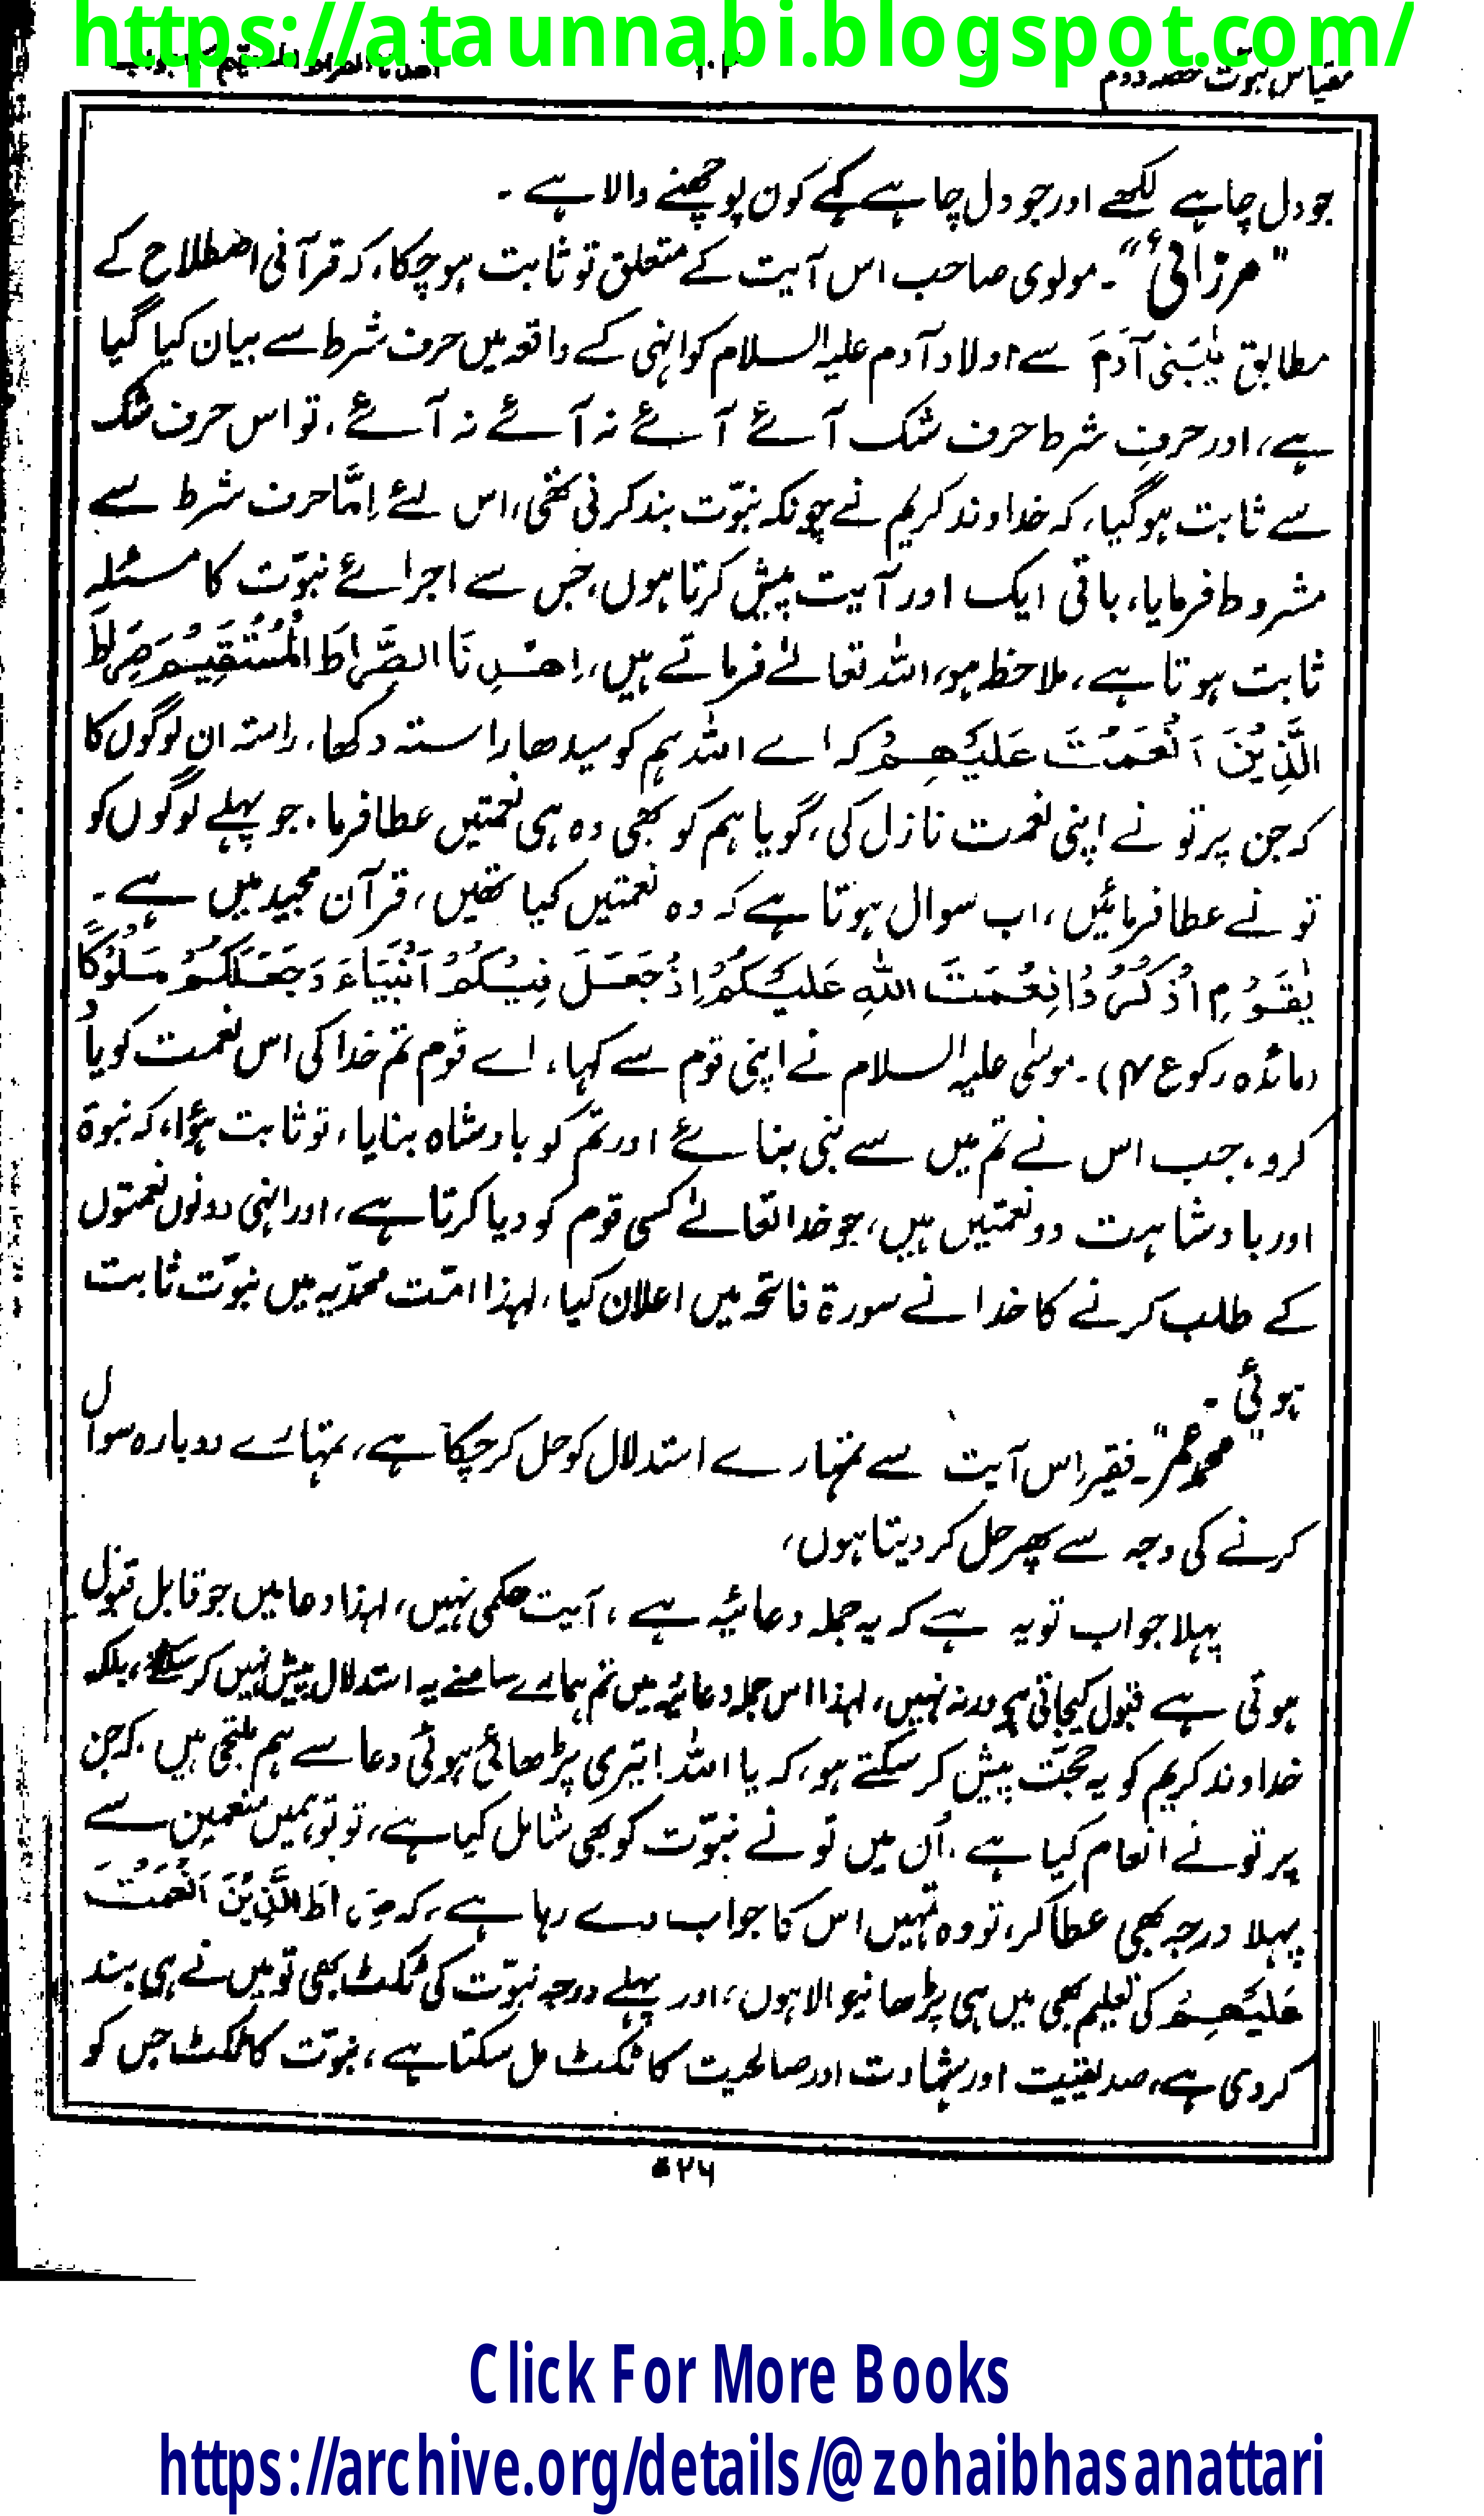 https://ataunnabi.blogspot.com/
مقیاس نبوّت حصہ دوم
جو دل چاہے لکھے اور جو دل چاہے کہے کون پوچھنے والا ہے ۔
"مرزائی" ۔ مولوی صاحب اس آیت کے متعلق تو ثابت ہو چکا، کہ قرآنی اصطلاح کے
مطابق یٰبَنِی آدَمَ سے اولاد آدم علیہ السلام کو انہی کے واقعہ میں حرف شرط سے بیان کیا گیا
ہے، اور حرفِ شرط حرف شک آئے آئے نہ آئے نہ آئے، تو اس حرف شک
سے ثابت ہو گیا، کہ خداوند کریم نے چونکہ نبوّت بند کرنی تھی، اس لئے اِمَّا حرف شرط سے
مشروط فرمایا، باقی ایک اور آیت پیش کرتا ہوں، جس سے اجرائے نبوّت کا مسئلہ
ثابت ہوتا ہے، ملاحظہ ہو، اللہ تعالےٰ فرماتے ہیں، اِھْدِنَا الصِّرَاطَ الْمُسْتَقِیْمَ صِرَاطَ
الَّذِیْنَ اَنْعَمْتَ عَلَیْھِمْ کہ اے اللہ ہم کو سیدھا راستہ دکھا، راستہ ان لوگوں کا
کہ جن پر تو نے اپنی نعمت نازل کی، گویا ہم کو بھی وہ ہی نعمتیں عطا فرما، جو پہلے لوگوں کو
تو نے عطا فرمائیں، اب سوال ہوتا ہے کہ وہ نعمتیں کیا تھیں، قرآن مجید میں ہے ۔
یٰقَوْمِ اذْکُرُوْا نِعْمَتَ اللّٰہِ عَلَیْکُمْ اِذْ جَعَلَ فِیْکُمْ اَنْبِیَاءَ وَجَعَلَکُمْ مُلُوْکًا
(مائدہ رکوع ۴) ۔ موسٰی علیہ السلام نے اپنی قوم سے کہا، اے قوم تم خدا کی اس نعمت کو یاد
کرو، جب اس نے تم میں سے نبی بنائے اور تم کو بادشاہ بنایا، تو ثابت ہؤا، کہ نبوۃ
اور بادشاہت دو نعمتیں ہیں، جو خدا تعالےٰ کسی قوم کو دیا کرتا ہے، اور انہی دونوں نعمتوں
کے طلب کرنے کا خدا نے سورۃ فاتحہ میں اعلان کیا، لہذا امّت محمدّیہ میں نبوّت ثابت
ہوئی ۔
"محمد عمر" ۔ فقیر اس آیت سے تمہارے استدلال کو حل کر چکا ہے، تمہارے دوبارہ سوال
کرنے کی وجہ سے پھر حل کر دیتا ہوں،
پہلا جواب تو یہ ہے کہ یہ جملہ دعائیہ ہے، آیت حکمی نہیں، لہذا دعا میں جو قابل قبول
ہوتی ہے قبول کیجاتی ہے ورنہ نہیں، لہذا اس جملہ دعائیہ میں تم ہمارے سامنے یہ استدلال پیش نہیں کر سکتے، بلکہ
خداوند کریم کو یہ حجّت پیش کر سکتے ہو، کہ یا اللہ! تیری پڑھائی ہوئی دعا سے ہم ملتجی ہیں، کہ جن
پر تو نے انعام کیا ہے، اُن میں تو نے نبوّت کو بھی شامل کیا ہے، تو تو ہمیں منعمین سے
پہلا درجہ بھی عطا کر، تو وہ تمہیں اس کا جواب دے رہا ہے، کہ صِرَاطَ الَّذِیْنَ اَنْعَمْتَ
عَلَیْھِمْ کی تعلیم بھی میں ہی پڑھانیوالا ہوں، اور پہلے درجہ نبوّت کی ٹکٹ بھی تو میں نے ہی بند
کر دی ہے، صدیقیت اور شہادت اور صالحیت کا ٹکٹ مل سکتا ہے، نبوّت کا ٹکٹ جس کو
Click For More Books
https://archive.org/details/@zohaibhasanattari